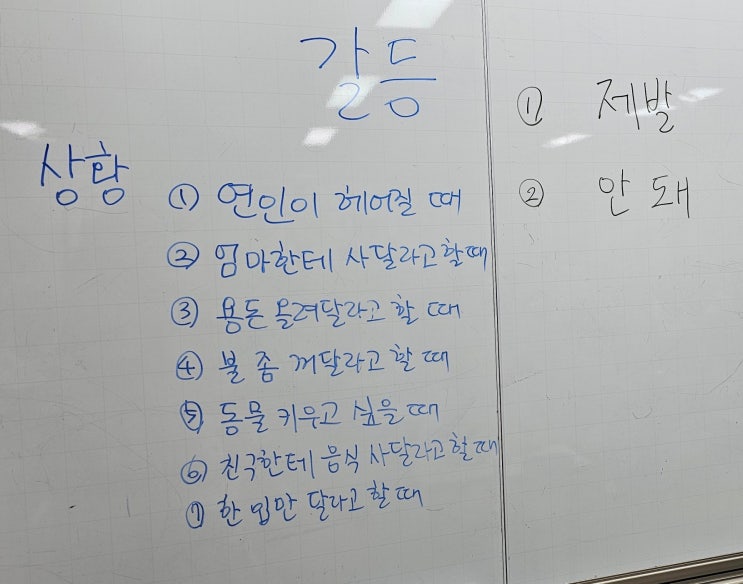 갈등
상황
① 연인이 헤어질 때
② 엄마한테 사달라고할때
③ 용돈 올려달라고 할 때
④ 불 좀 꺼달라고 할 때
⑤ 동물 키우고 싶을 때
⑥ 친구한테 음식 사달라고할때
⑦ 한 입만 달라고 할 때
① 제발
② 안 돼